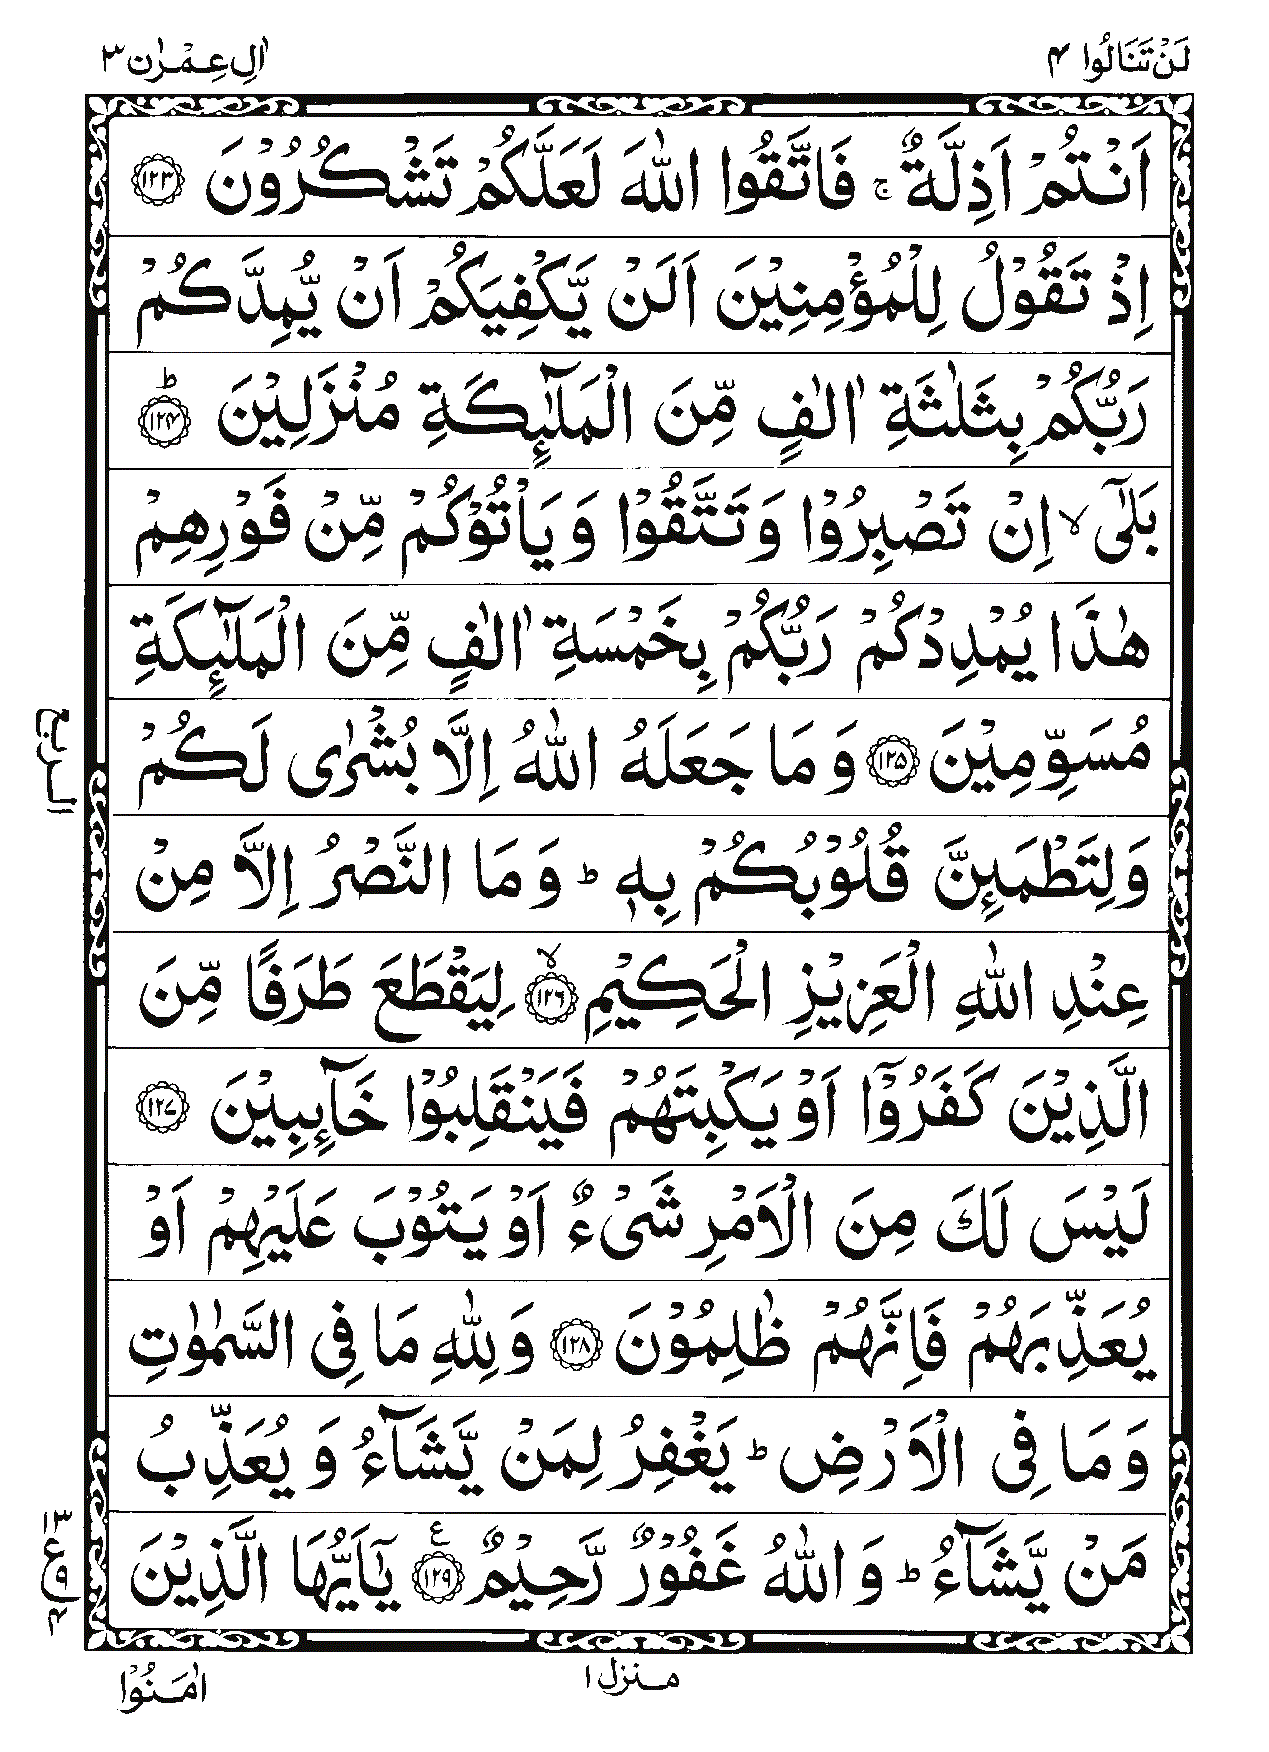 لَنْ تَنَالُوا ۴
اٰلِ عِمْرٰن ۳
اَنْتُمْ اَذِلَّةٌ ۚ فَاتَّقُوا اللّٰهَ لَعَلَّكُمْ تَشْكُرُوْنَ ﴿۱۲۳﴾
اِذْ تَقُوْلُ لِلْمُؤْمِنِيْنَ اَلَنْ يَّكْفِيَكُمْ اَنْ يُّمِدَّكُمْ
رَبُّكُمْ بِثَلٰثَةِ اٰلٰفٍ مِّنَ الْمَلٰٓئِكَةِ مُنْزَلِيْنَ ؕ ﴿۱۲۴﴾
بَلٰٓى ۙ اِنْ تَصْبِرُوْا وَتَتَّقُوْا وَيَاْتُوْكُمْ مِّنْ فَوْرِهِمْ
هٰذَا يُمْدِدْكُمْ رَبُّكُمْ بِخَمْسَةِ اٰلٰفٍ مِّنَ الْمَلٰٓئِكَةِ
مُسَوِّمِيْنَ ﴿۱۲۵﴾ وَمَا جَعَلَهُ اللّٰهُ اِلَّا بُشْرٰى لَكُمْ
الربع
وَلِتَطْمَئِنَّ قُلُوْبُكُمْ بِهٖ ؕ وَمَا النَّصْرُ اِلَّا مِنْ
عِنْدِ اللّٰهِ الْعَزِيْزِ الْحَكِيْمِ ۙ ﴿۱۲۶﴾ لِيَقْطَعَ طَرَفًا مِّنَ
الَّذِيْنَ كَفَرُوْٓا اَوْ يَكْبِتَهُمْ فَيَنْقَلِبُوْا خَآئِبِيْنَ ﴿۱۲۷﴾
لَيْسَ لَكَ مِنَ الْاَمْرِ شَیْءٌ اَوْ يَتُوْبَ عَلَيْهِمْ اَوْ
يُعَذِّبَهُمْ فَاِنَّهُمْ ظٰلِمُوْنَ ﴿۱۲۸﴾ وَلِلّٰهِ مَا فِی السَّمٰوٰتِ
وَمَا فِی الْاَرْضِ ؕ يَغْفِرُ لِمَنْ يَّشَآءُ وَيُعَذِّبُ
مَنْ يَّشَآءُ ؕ وَاللّٰهُ غَفُوْرٌ رَّحِيْمٌ ﴿۱۲۹﴾ ع يٰٓاَيُّهَا الَّذِيْنَ
۱۳
ع
۹
۴
منزل ۱
اٰمَنُوْا